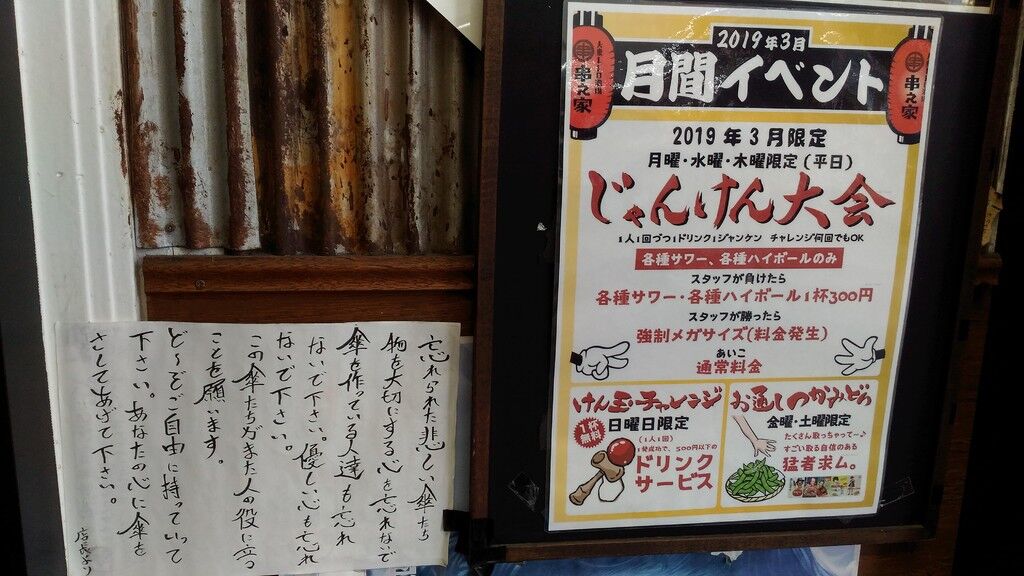 忘れられた悲しい傘たち
物を大切にする心を忘れないで
傘を作っている人達も忘れ
ないで下さい。優しい心も忘れ
ないで下さい。
この傘たちがまた人の役に立つ
ことを願います。
ど〜どご自由に持っていって
下さい。あなたの心に傘を
さしてあげて下さい。
店長より
2019年3月
月間イベント
串之家
串之家
2019年3月限定
月曜・水曜・木曜限定(平日)
じゃんけん大会
1人1回づつ1ドリンク1ジャンケン チャレンジ何回でもOK
各種サワー、各種ハイボールのみ
スタッフが負けたら
各種サワー・各種ハイボール1杯300円
スタッフが勝ったら
強制メガサイズ(料金発生)
あいこ
通常料金
けん玉チャレンジ
1杯無料
日曜日限定
(1人1回)
1発成功で、500円以下の
ドリンク
サービス
お通しつかみどり
金曜・土曜限定
たくさん取っちゃって〜♪
すごい取る自信のある
猛者求ム。